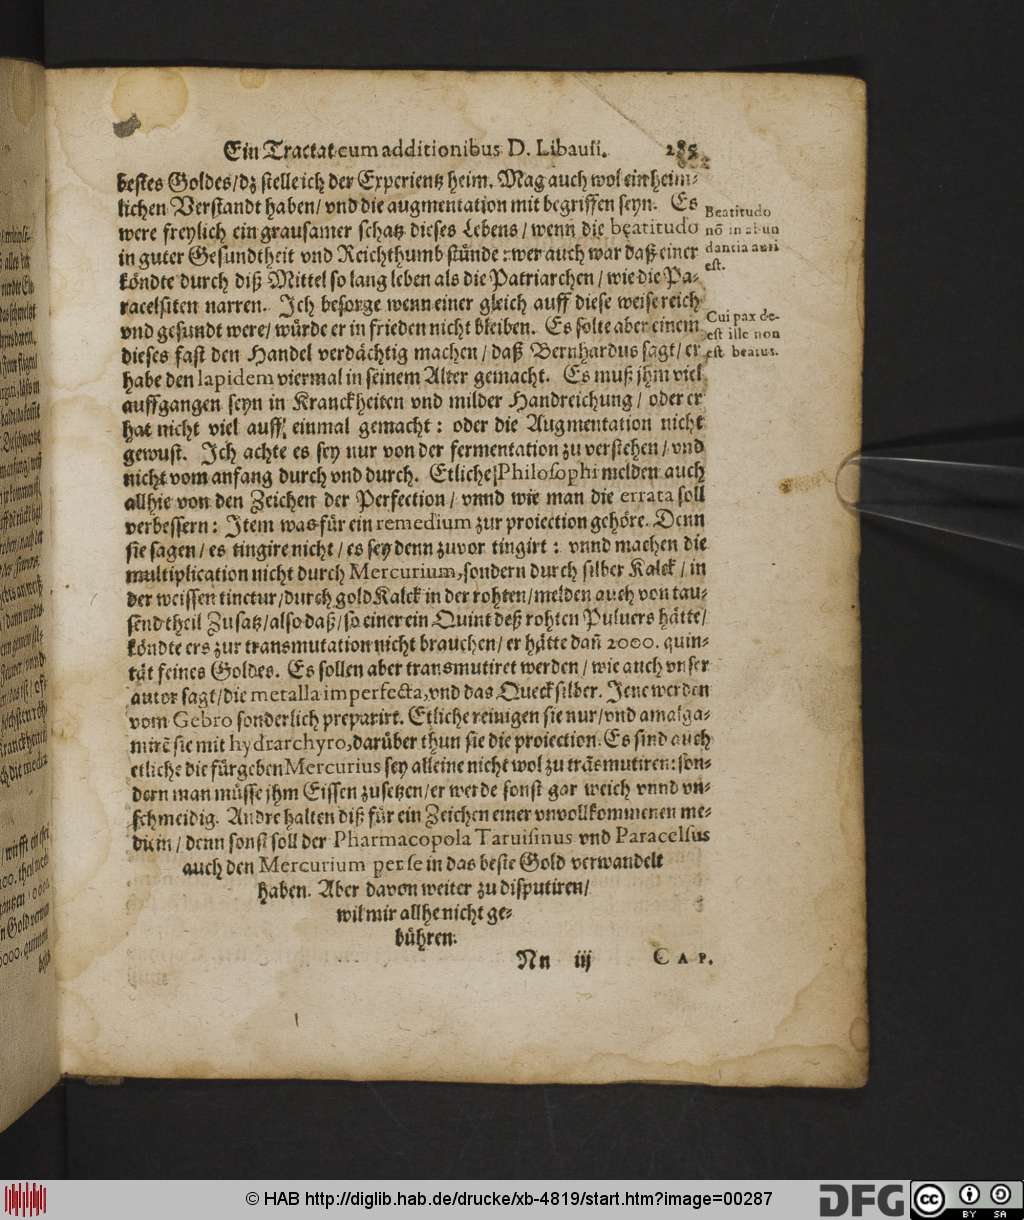 Ein Tractat cum additionibus D. Libauii. 285
bestes Goldes/dz stelle ich der Experientz heim. Mag auch wol ein heim-
lichen Verstandt haben/ vnd die augmentation mit begriffen seyn. Es
were freylich ein grausamer schatz dieses Lebens/ wenn die beatitudo
in guter Gesundtheit vnd Reichthumb stünde: wer auch war daß einer
köndte durch diß Mittel so lang leben als die Patriarchen/ wie die Pa-
racelsiten narren. Ich besorge wenn einer gleich auff diese weise reich
vnd gesundt were/ würde er in frieden nicht bleiben. Es solte aber einem
dieses fast den Handel verdächtig machen/ daß Bernhardus sagt/ er
habe den lapidem viermal in seinem Alter gemacht. Es muß jhm viel
auffgangen seyn in Kranckheiten vnd milder Handreichung/ oder er
hat nicht viel auff einmal gemacht: oder die Augmentation nicht
gewust. Ich achte es sey nur von der fermentation zu verstehen/ vnd
nicht vom anfang durch vnd durch. Etliche Philosophi melden auch
allhie von den Zeichen der Perfection/ vnnd wie man die errata soll
verbessern: Item was für ein remedium zur proiection gehöre. Denn
sie sagen/ es tingire nicht/ es sey denn zuvor tingirt: vnnd machen die
multiplication nicht durch Mercurium, sondern durch silber Kalck/ in
der weissen tinctur/durch gold Kalck in der rohten/melden auch von tau-
send theil Zusatz/also daß/so einer ein Quint deß rohten Puluers hätte/
köndte ers zur transmutation nicht brauchen/ er hätte dañ 2000. quin-
tät feines Goldes. Es sollen aber transmutiret werden/ wie auch vnser
autor sagt/die metalla imperfecta, vnd das Quecksilber. Jene werden
vom Gebro sonderlich preparirt. Etliche reinigen sie nur/vnd amalga-
mirē sie mit hydrarchyro, darüber thun sie die proiection. Es sind auch
etliche die fürgeben Mercurius sey alleine nicht wol zu träsmutiren: son-
dern man müsse jhm Eissen zusetzen/er werde sonst gar weich vnnd vn-
schmeidig. Andre halten diß für ein Zeichen einer vnvollkommenen me-
dicin/ denn sonst soll der Pharmacopola Taruisinus vnd Paracelsus
auch den Mercurium per se in das beste Gold verwandelt
haben. Aber davon weiter zu disputiren/
wil mir allhe nicht ge-
bühren.
Nn iij CAP.
Beatitudo
nō in abun
dantia auri
est.
Cui pax de-
est ille non
est beatus.
© HAB http://diglib.hab.de/drucke/xb-4819/start.htm?image=00287
DFG
cc BY SA